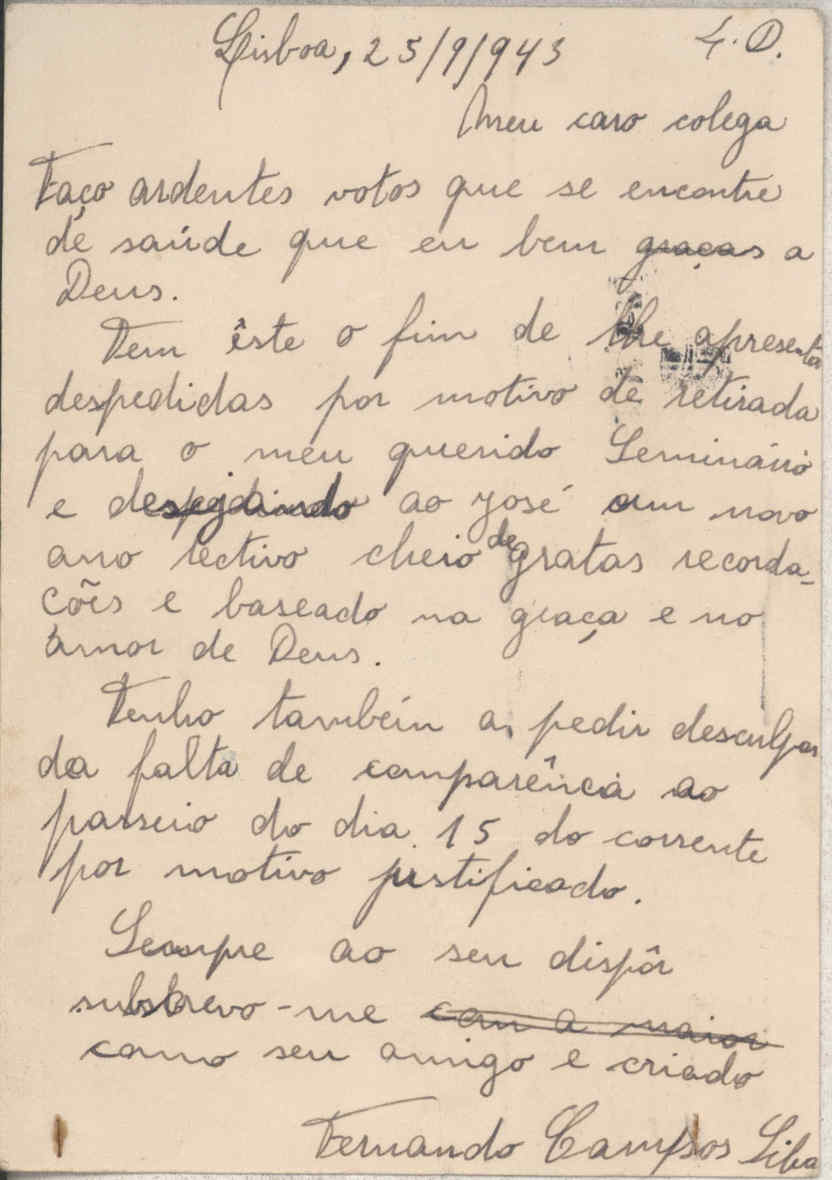 Lisboa, 25/9/943 L. D.
Meu caro colega
Faço ardentes votos que se encontre
de saúde que eu bem graças a
Deus.
Tem êste o fim de lhe apresentar
despedidas por motivo de retirada
para o meu querido Seminário
e desejando ao José um novo
ano lectivo cheio de gratas recorda-
ções e baseado na graça e no
amor de Deus.
Tenho também a pedir desculpa
da falta de comparência ao
passeio do dia 15 do corrente
por motivo justificado.
Sempre ao seu dispôr
subscrevo-me com a maior
como seu amigo e criado
Fernando Campos